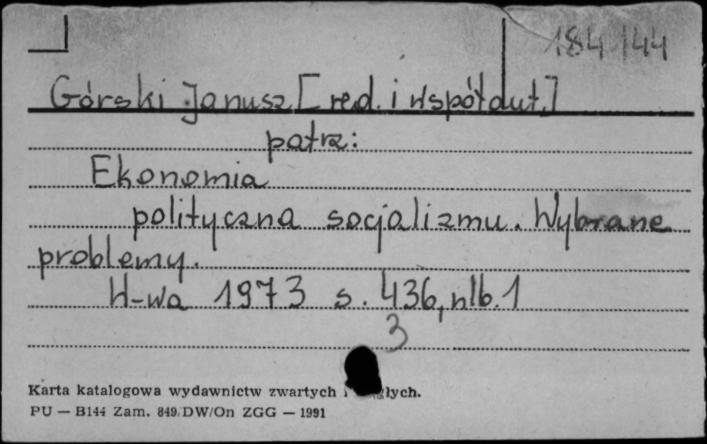 184144
Górski Janusz [red. i współaut.]
patrz:
Ekonomia
polityczna socjalizmu. Wybrane
problemy.
W-wa 1973 s. 436, nlb. 1
3
Karta katalogowa wydawnictw zwartych i
PU — B144 Zam. 849/DW/On ZGG — 1991